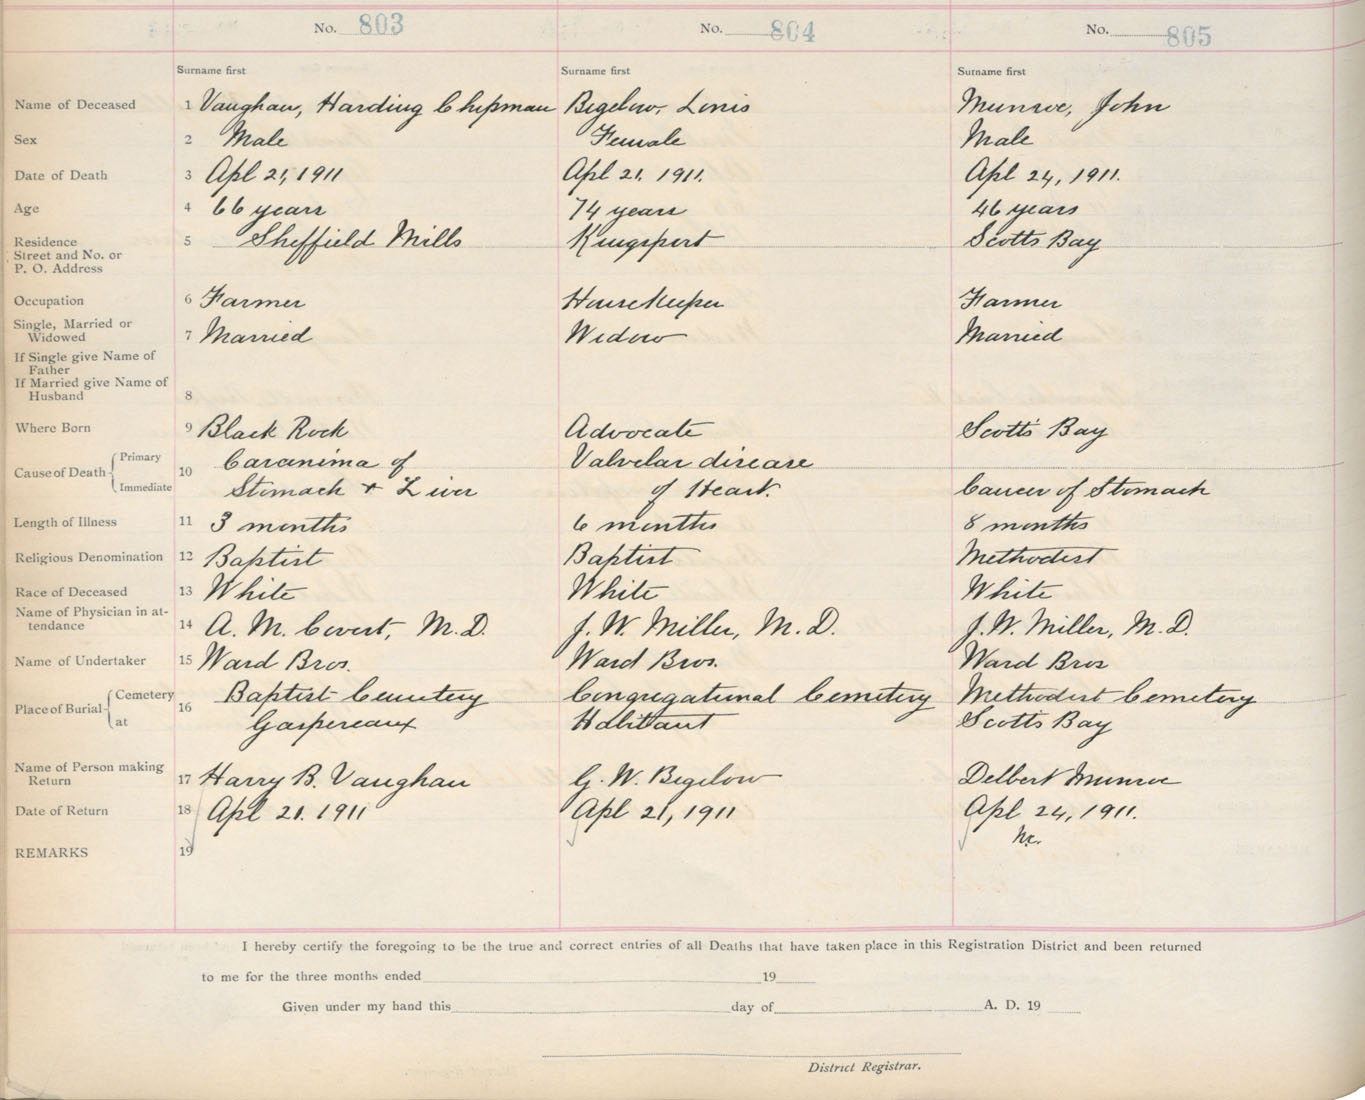 No. 803 No. 804 No. 805
Surname first Surname first Surname first
Name of Deceased 1 Vaughan, Harding Chipman Bigelow, Lonis Munroe, John
Sex 2 Male Female Male
Date of Death 3 Apl 21, 1911 Apl 21. 1911. Apl 24, 1911.
Age 4 66 years 74 years 46 years
Residence 5 Sheffield Mills Kingsport Scotts Bay
Street and No. or
P. O. Address
Occupation 6 Farmer Housekeeper Farmer
Single, Married or
Widowed 7 Married Widow Married
If Single give Name of
Father
If Married give Name of
Husband 8
Where Born 9 Black Rock Advocate Scotts Bay
Cause of Death 10 Primary Carcinima of Valvelar disease
Immediate Stomach + Liver of Heart. Cancer of Stomach
Length of Illness 11 3 months 6 months 8 months
Religious Denomination 12 Baptist Baptist Methodist
Race of Deceased 13 White White White
Name of Physician in at-
tendance 14 A. M. Covert, M.D. J. W. Miller, M.D. J. W. Miller, M.D.
Name of Undertaker 15 Ward Bros. Ward Bros. Ward Bros
Place of Burial 16 Cemetery Baptist Cemetery Congregational Cemetery Methodist Cemetery
at Gaspereaux Habitant Scotts Bay
Name of Person making
Return 17 Harry B. Vaughan G. W. Bigelow Delbert Munroe
Date of Return 18 Apl 21. 1911 Apl 21, 1911 Apl 24, 1911.
REMARKS 19
I hereby certify the foregoing to be the true and correct entries of all Deaths that have taken place in this Registration District and been returned
to me for the three months ended 19
Given under my hand this day of A. D. 19
District Registrar.